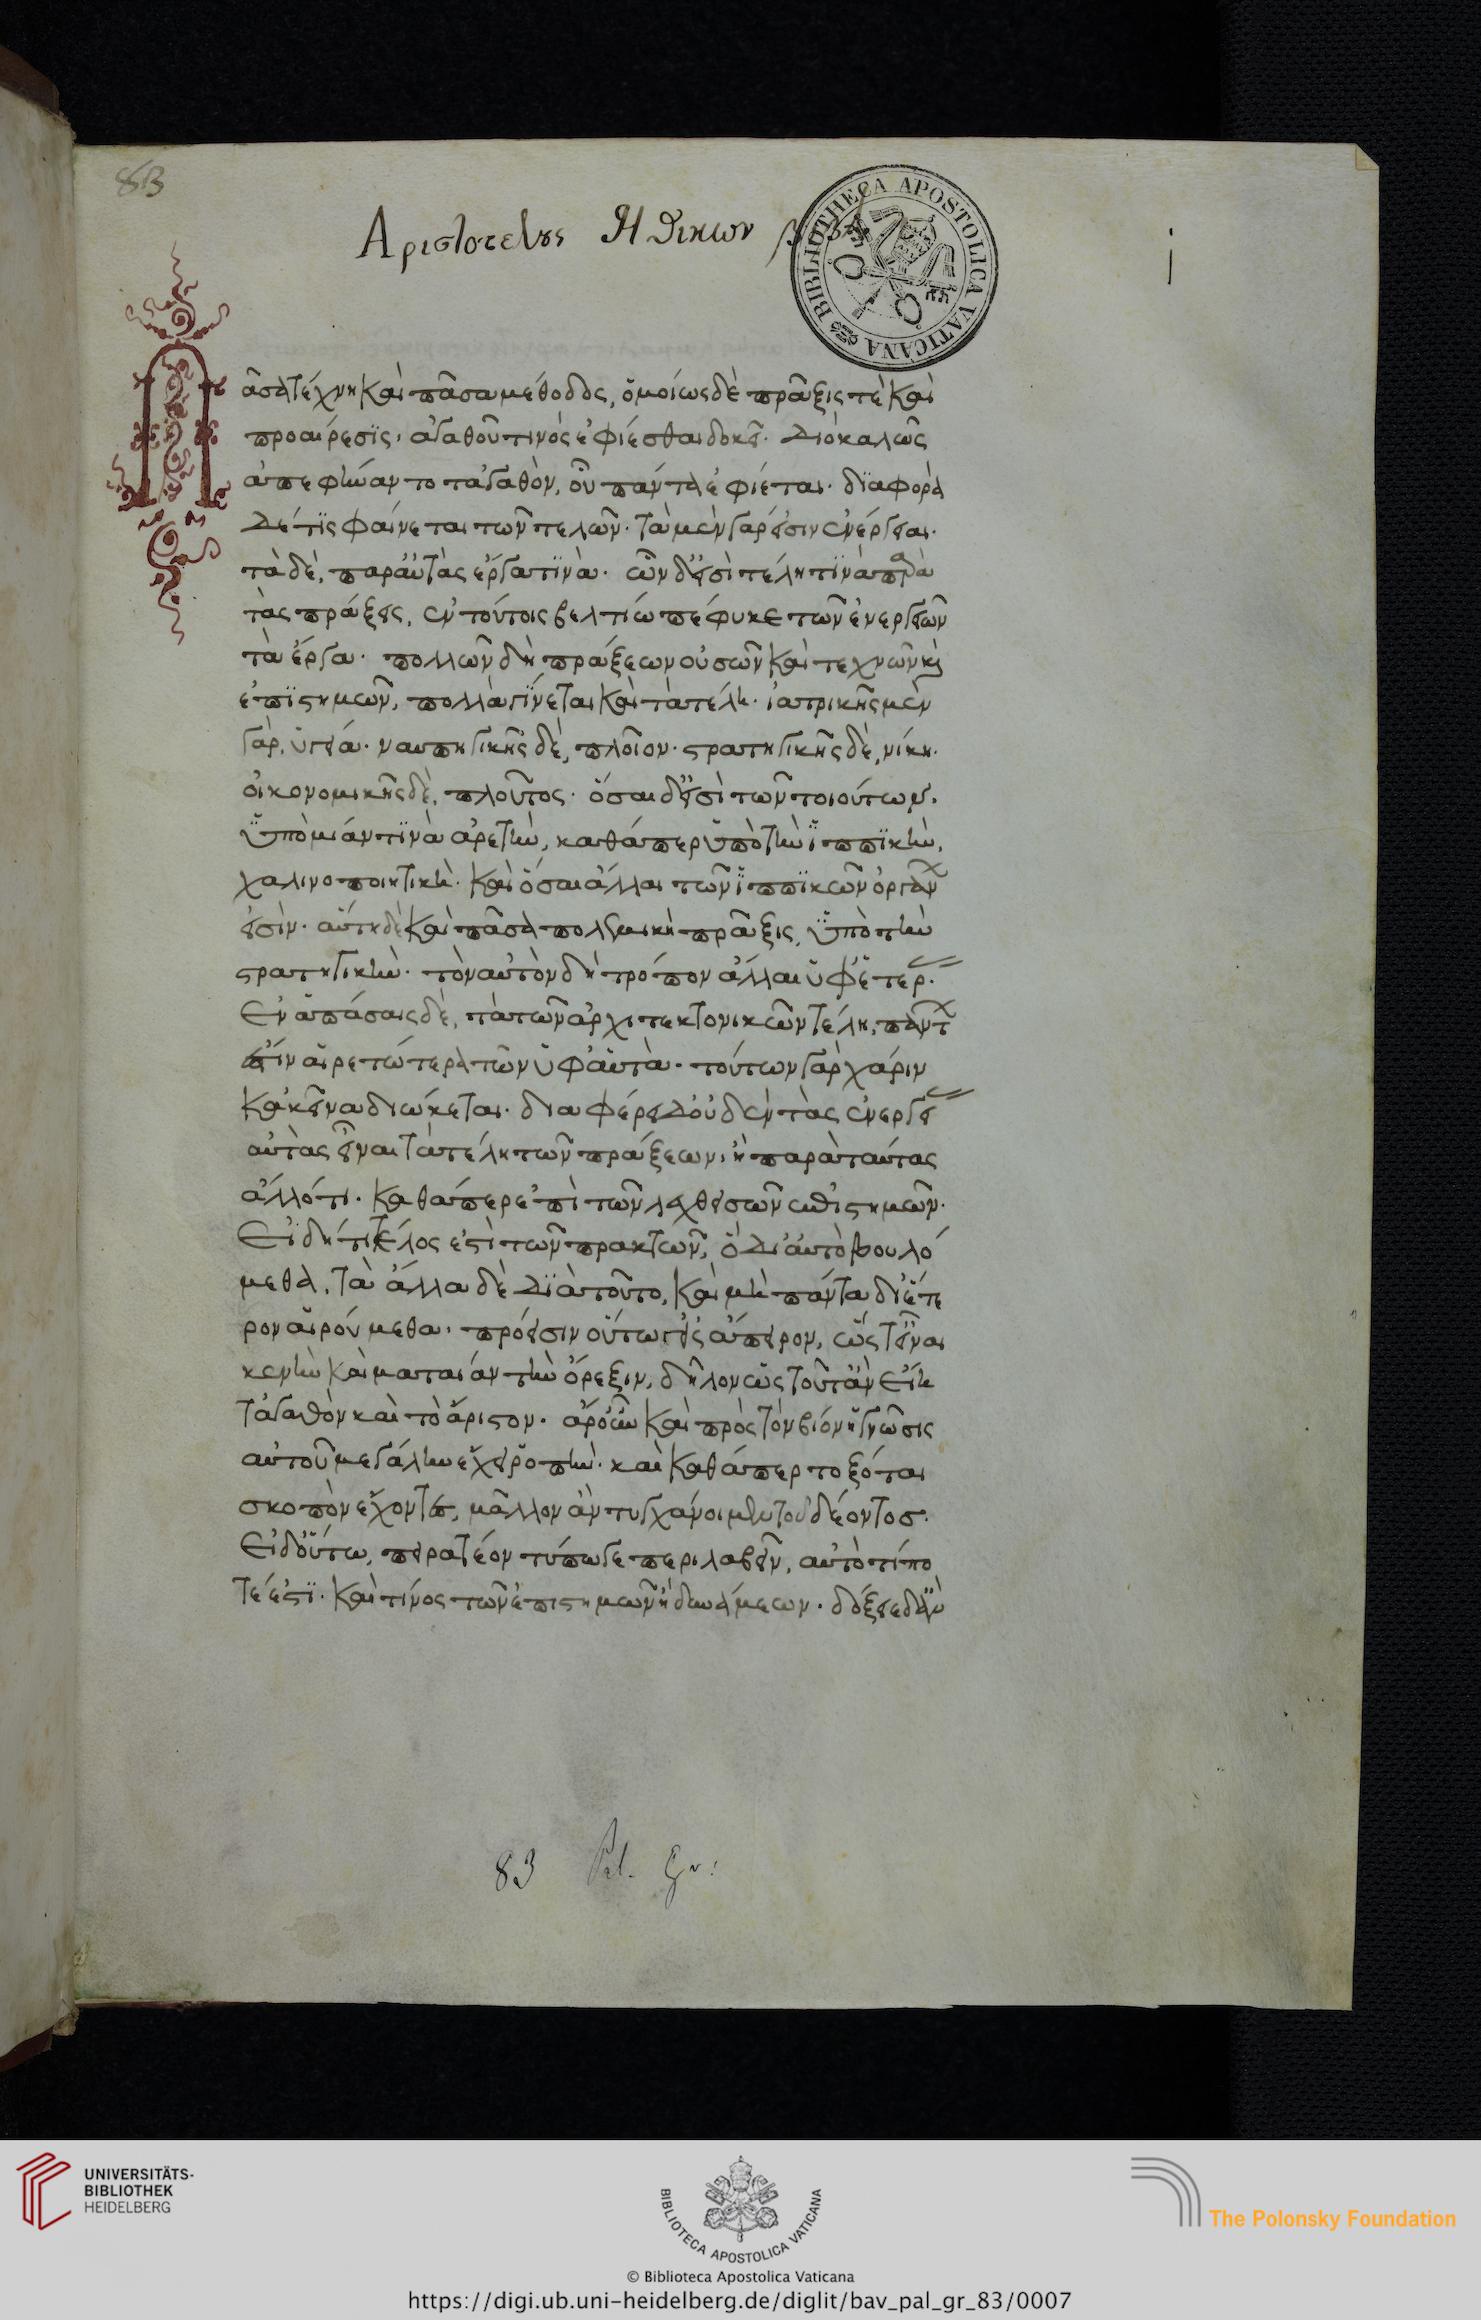 83
Αριστοτελους Ηθικων
BIBLIOTHECA APOSTOLICA VATICANA
1
Πᾶσα τέχνη καὶ πᾶσα μέθοδος, ὁμοίως δὲ πρᾶξις τὲ καὶ
προαίρεσϊς, ἀγαθοῦ τινὸς ἐφίεσθαι δοκεῖ· Διὸ καλῶς
ἀπεφήναντο τἀγαθὸν, οὗ πάντα ἐφίεται· δϊαφορὰ
Δέ τϊς φαίνεται τῶν τελῶν· τὰ μὲν γάρ εἰσιν ἐνέργειαι·
τὰ δὲ, παρ' αὐτὰς ἔργα τϊνὰ· ὧν δ' εἰσὶ τέλη τϊνὰ παρὰ
τὰς πράξεις, ἐν τούτοις βελτίω πέφυκε τῶν ἐνεργειῶν
τὰ ἔργα· πολλῶν δὴ πράξεων οὐσῶν καὶ τεχνῶν καὶ
ἐπϊστημῶν, πολλὰ γΐνεται καὶ τὰ τέλη· ἰατρικῆς μὲν
γὰρ, ὑγεία· ναυπηγικῆς δὲ, πλοῖον· στρατηγικῆς δὲ, νίκη·
οἰκονομικῆς δὲ, πλοῦτος· ὅσαι δ' εἰσὶ τῶν τοιούτων,
ὑπὸ μιάν τϊνὰ ἀρετὴν, καθάπερ ὑπὸ τὴν ἱππϊκὴν,
χαλινοποιητικὴ· καὶ ὅσαι ἄλλαι τῶν ἱππϊκῶν ὀργάνων
εἰσὶν· αὕτη δὲ καὶ πᾶσα πολεμικὴ πρᾶξις, ὑπὸ τὴν
στρατηγικὴν· τὸν αὐτὸν δὴ τρόπον ἄλλαι ὑφ' ἑτέρας·
Ἐν ἁπάσαις δὲ, τὰ τῶν ἀρχιτεκτονικῶν τέλη, πάντων
ἐστὶν αἱρετώτερα τῶν ὑφ' αὑτὰ· τούτων γὰρ χάριν
κἀκεῖνα διώκεται· διαφέρει Δ' οὐδὲν τὰς ἐνεργείας
αὐτὰς εἶναι τὰ τέλη τῶν πράξεων, ἢ παρὰ ταύτας
ἄλλό τι· καθάπερ ἐπὶ τῶν λεχθεισῶν ἐπιστημῶν·
Εἰ δή τι τέλος ἐστὶ τῶν πρακτῶν, ὃ Δι' αὑτὸ βουλό
μεθα, τὰ ἄλλα δὲ Δϊὰ τοῦτο, καὶ μὴ πάντα δι' ἕτε
ρον αἱρούμεθα, πρόεισιν οὕτω γ' εἰς ἄπειρον, ὥστ' εἶναι
κενὴν καὶ ματαίαν τὴν ὄρεξιν, δῆλον ὡς τοῦτ' ἂν εἴη
τἀγαθὸν καὶ τὸ ἄριστον· ἆρ' οὖν καὶ πρὸς τὸν βίον ἡ γνῶσις
αὐτοῦ μεγάλην ἔχει ῥοπὴν· καὶ καθάπερ τοξόται
σκοπὸν ἔχοντες, μᾶλλον ἂν τυγχάνοιμεν τοῦ δέοντος·
Εἰ δ' οὕτω, πειρατέον τύπω γε περιλαβεῖν, αὐτὸ τί πο
τέ ἐστϊ· καὶ τίνος τῶν ἐπιστημῶν ἢ δυνάμεων· δόξειε δ' ἂν
83 Pal. Gr:
UNIVERSITÄTS-
BIBLIOTHEK
HEIDELBERG
BIBLIOTECA APOSTOLICA VATICANA
The Polonsky Foundation
© Biblioteca Apostolica Vaticana
https://digi.ub.uni-heidelberg.de/diglit/bav_pal_gr_83/0007